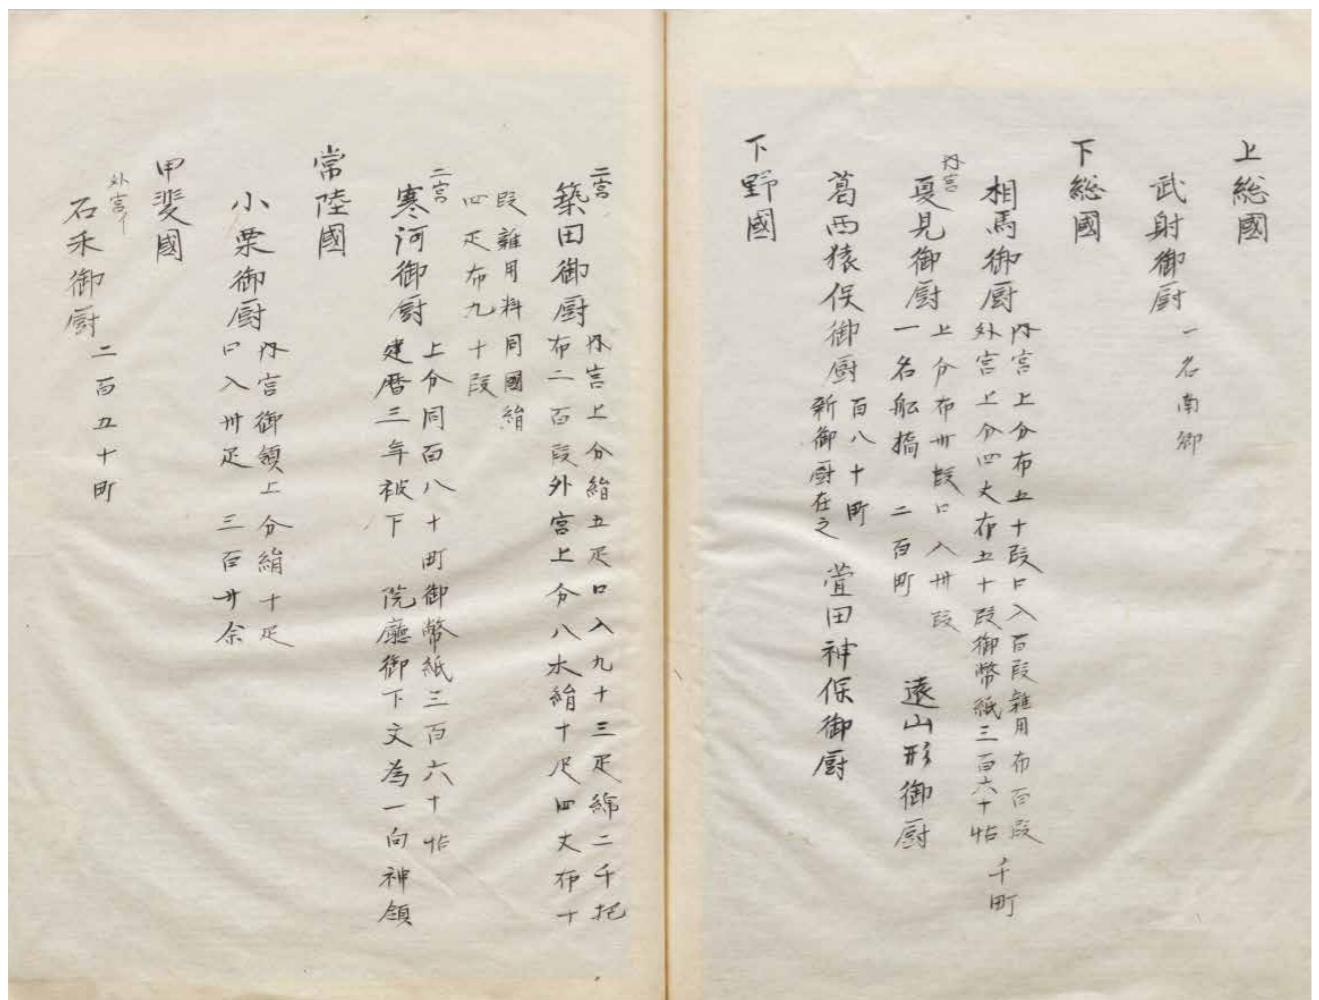 上総國
武射御厨
一名南郷
下総國
相馬御厨
内宮上分布五十段口入百段雑用布百段
外宮上分四丈布五十段御幣紙三百六十帖
千町
内宮
夏見御厨
上分布卅段口入卅段
一名舩橋 二百町
遠山形御厨
葛西猿俣御厨
百八十町
新御厨在之
萱田神保御厨
下野國
二宮
築田御厨
内宮上分絹五疋口入九十三疋綿二千把
布二百段外宮上分八丈絹十疋四丈布十
段雜用料同國絹
四疋布九十段
二宮
寒河御厨
上分同百八十町御幣紙三百六十帖
建暦三年被下 院廳御下文為一向神領
常陸國
小栗御厨
内宮御領上分絹十疋
口入卅疋 三百廿余
甲斐國
外宮
石禾御厨
二百五十町